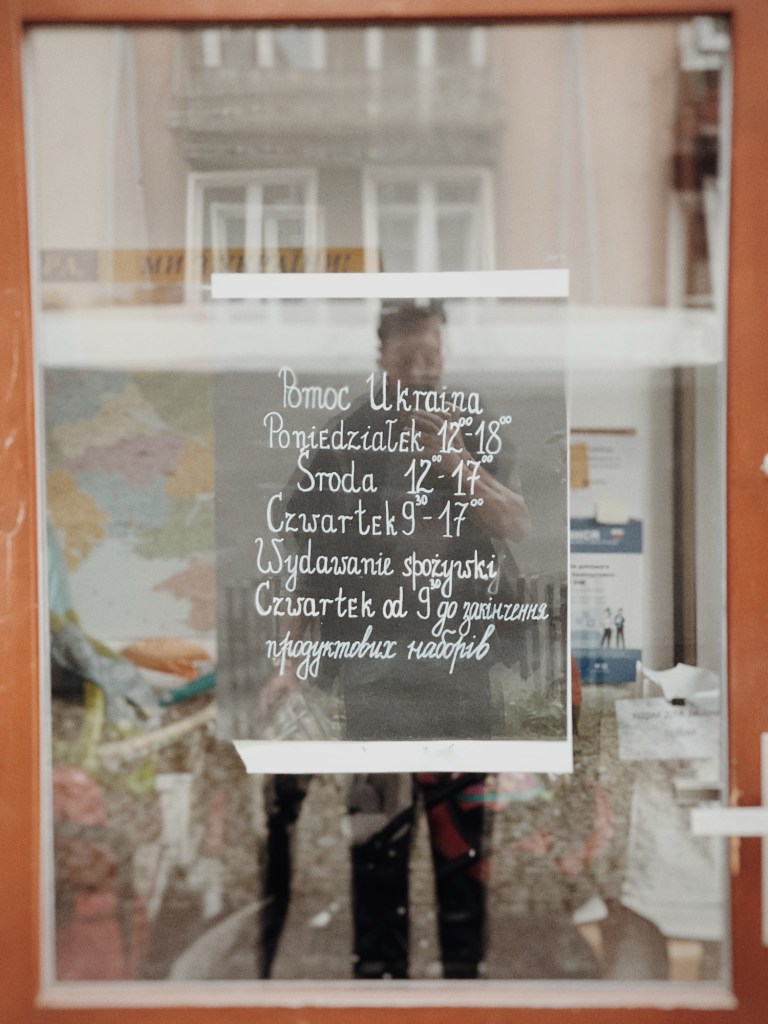 МИ З УКРАЇНИ!
Pomoc Ukraina
Poniedziałek 12⁰⁰-18⁰⁰
Środa 12⁰⁰-17⁰⁰
Czwartek 9³⁰-17⁰⁰
Wydawanie spożywki
Czwartek od 9³⁰ до закінчення
продуктових наборів